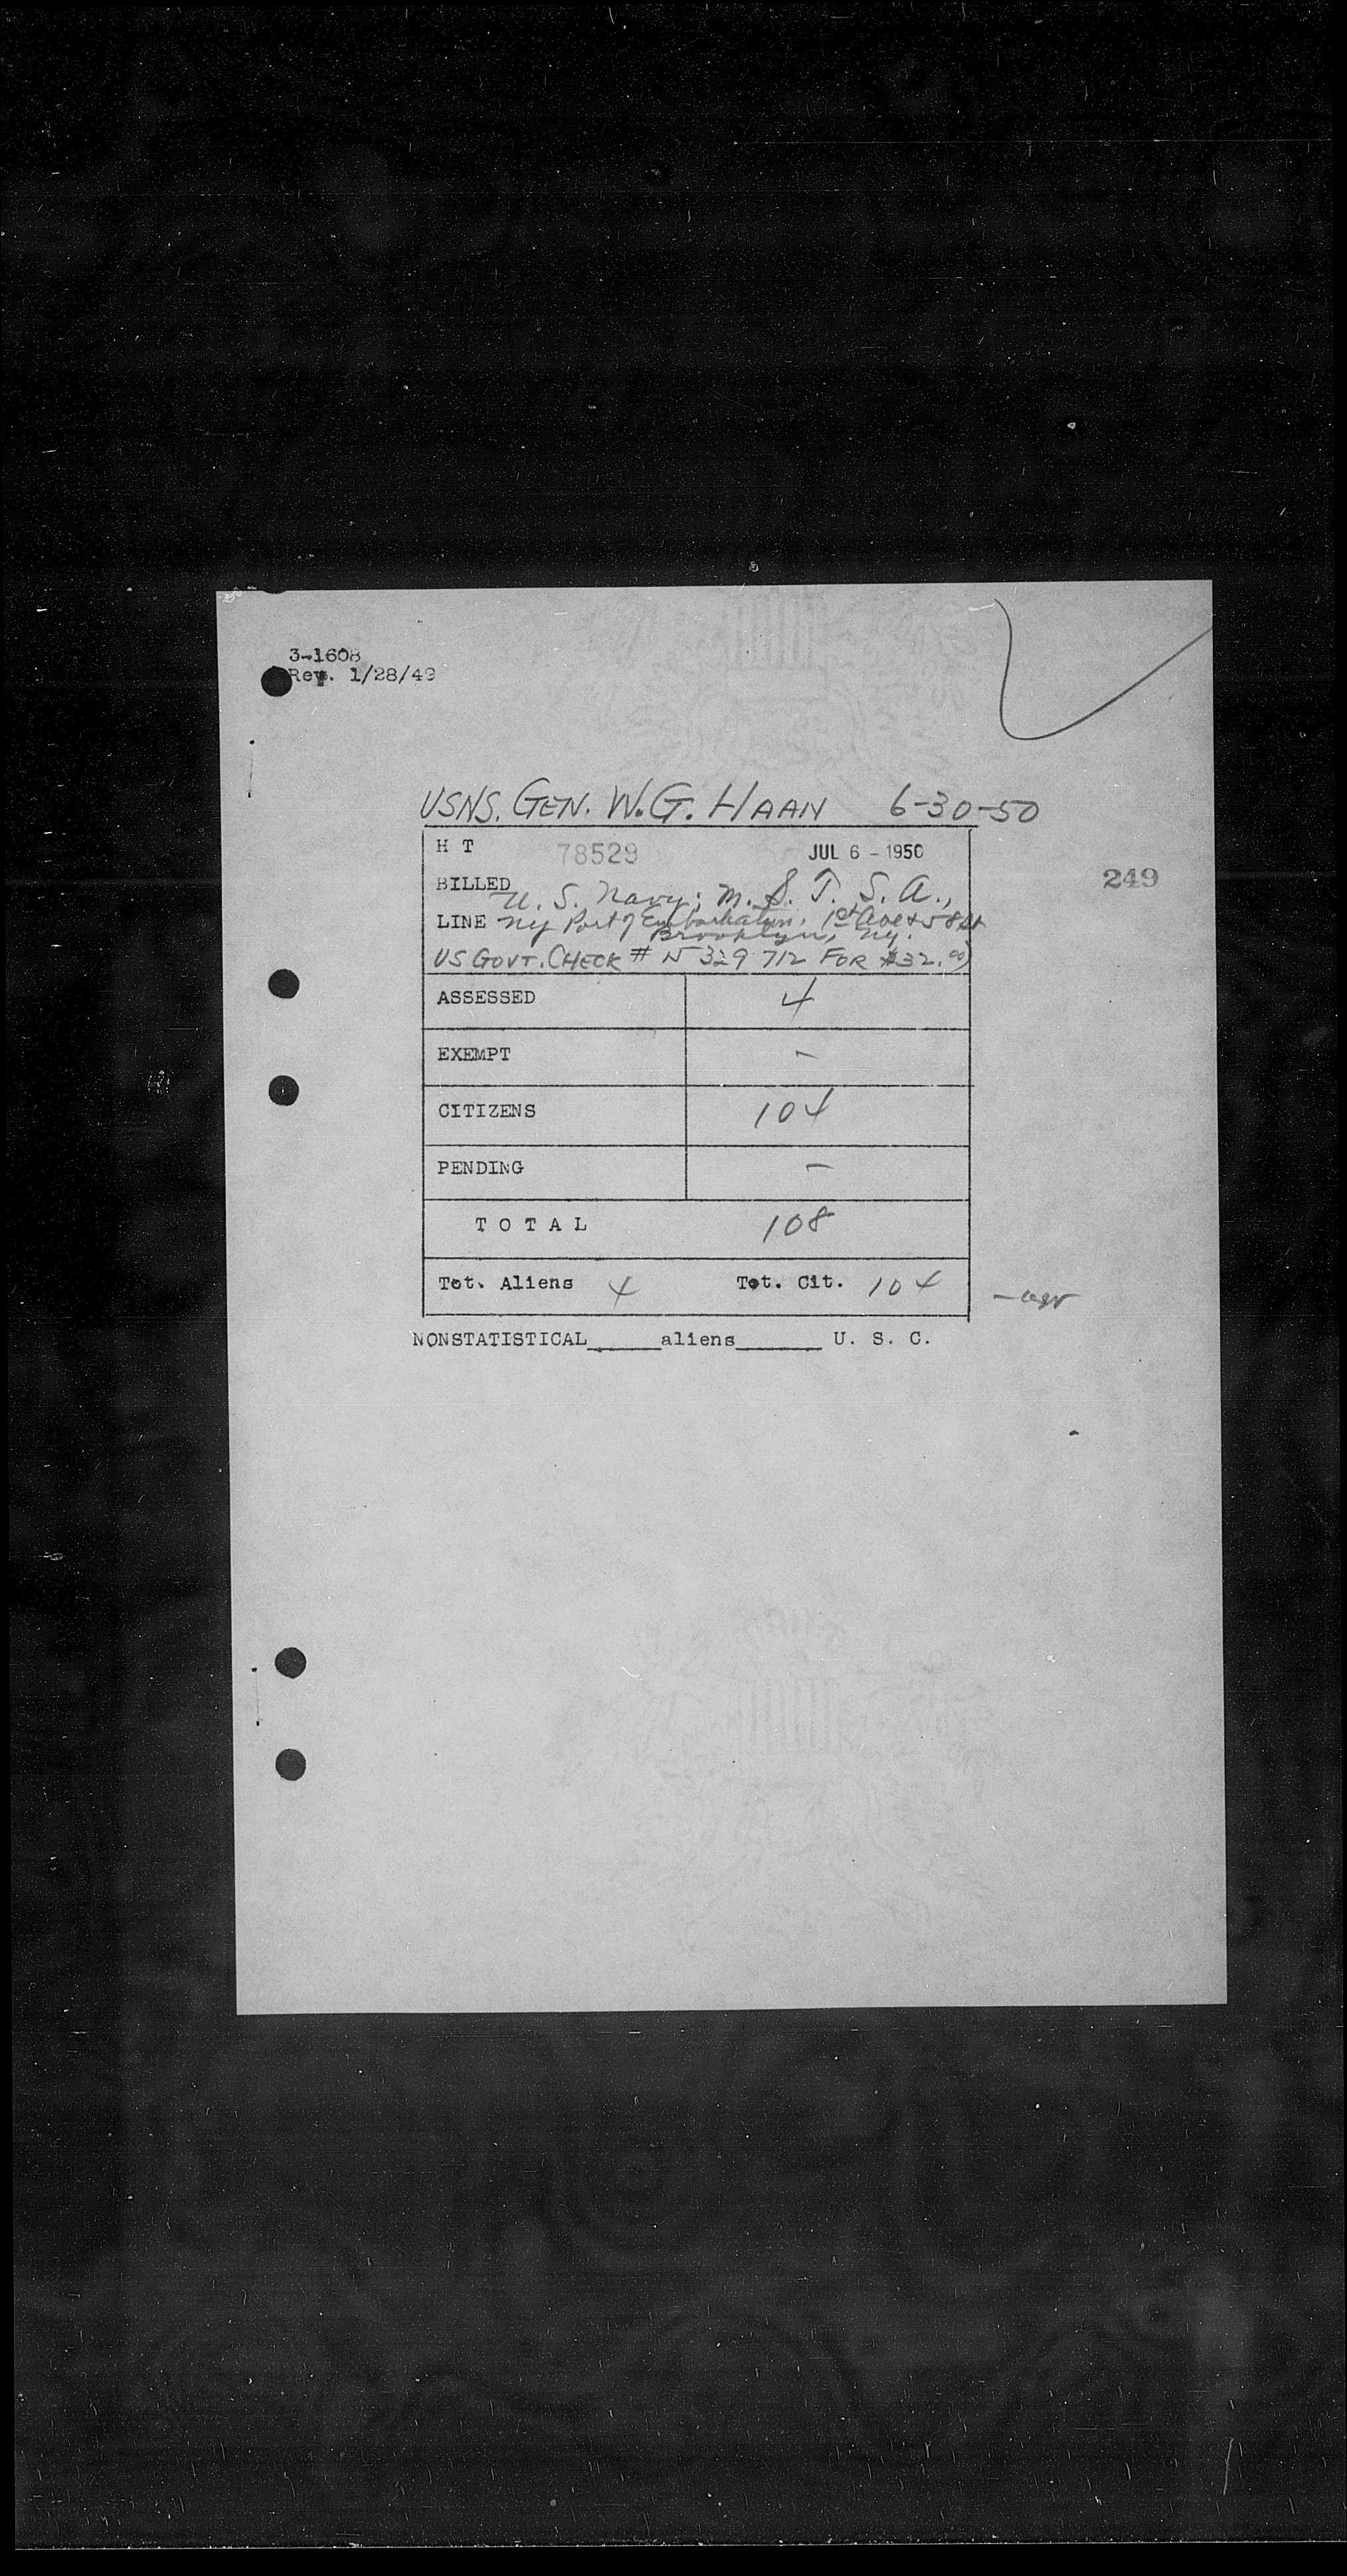 3-1608
Rev. 1/28/49
USNS. GEN. W.G. HAAN 6-30-50
H T 78529 JUL 6 - 1950
249
BILLED U. S. Navy; M. S. T. S. A.,
LINE NY Port of Embarkation, 1st Ave & 58 St
Brooklyn, NY.
US GOVT. CHECK # N 329 712 FOR $32.00)
ASSESSED 4
EXEMPT –
CITIZENS 104
PENDING –
T O T A L 108
Tot. Aliens 4 Tot. Cit. 104
NONSTATISTICAL_____aliens______ U. S. C.